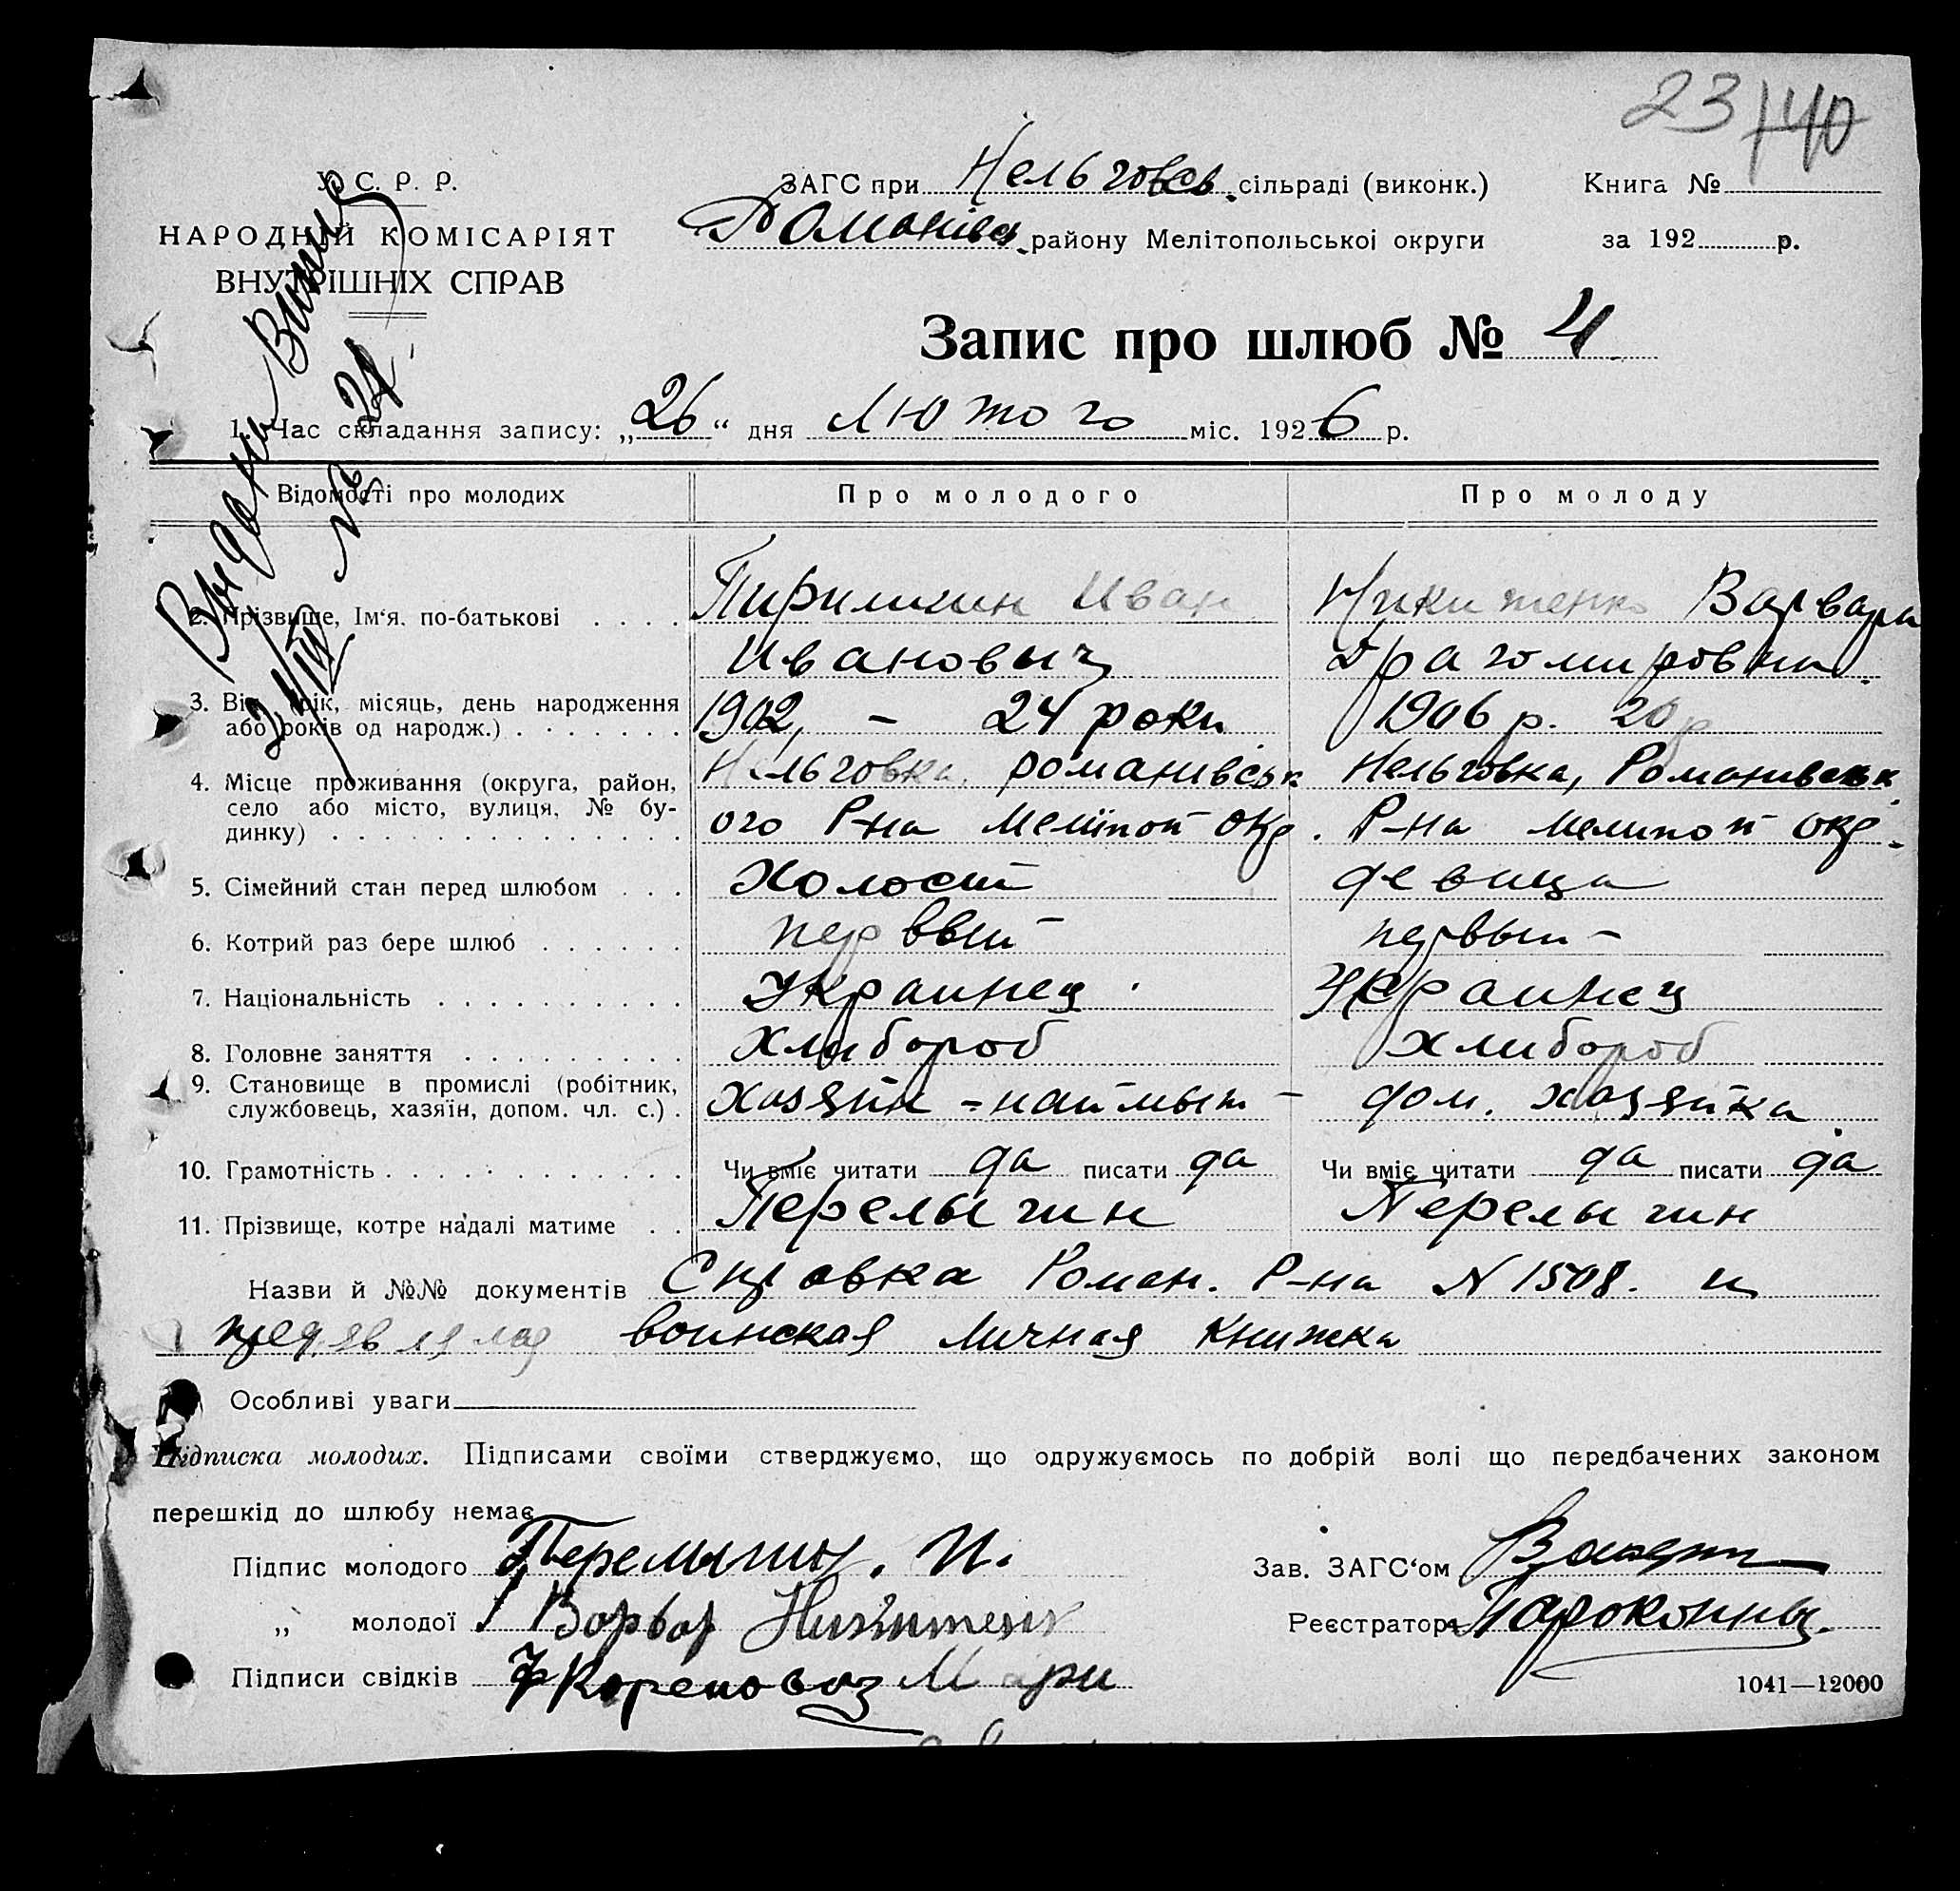 23 140
У. С. Р. Р.
НАРОДНІЙ КОМІСАРІЯТ
ВНУТРІШНІХ СПРАВ
ЗАГС при Нельговсь. сільраді (виконк.)
Романівсь. району Мелітопольської округи
Книга №
за 192 р.
Запис про шлюб № 4
1. Час складання запису: „26“ дня Лютого міс. 1926 р.
Выдань Витяг
№ 24
Відомості про молодих Про молодого Про молоду
2. Прізвище, Ім‘я, по-батькові . . . . Пирилигин Иван Никитенко Варвара
Ивановыч Драгомировна
3. Вік (рік, місяць, день народження 1902, – 24 роки 1906 р. 20 р
або років од народж.) . . . . . . .
4. Місце проживання (округа, район, Нельговка, романивськ Нельговка, Романивськ
село або місто, вулиця, № бу-
динку) . . . . . . . . . . . . . . ого Р-на Меліпоп окр. Р-на мелипоп окр.
5. Сімейний стан перед шлюбом . . . Холост девица
6. Котрий раз бере шлюб . . . . . . перввый первый –
7. Національність . . . . . . . . . . Украинец Украинец
8. Головне заняття . . . . . . . . . Хлибороб хлибороб
9. Становище в промислі (робітник,
службовець, хазяїн, допом. чл. с.) . Хозяйн - наймыт – дом. хозяйка
10. Грамотність . . . . . . . . . . . . Чи вміє читати да писати да Чи вміє читати да писати да
11. Прізвище, котре надалі матиме . . Перелыгин Перелыгин
Назви й №№ документів Справка Роман. Р-на N 1508. и
предъявлял воинская личная книжка
Особливі уваги
Підписка молодих. Підписами своїми стверджуємо, що одружуємось по добрій волі що передбачених законом
перешкід до шлюбу немає
Підпис молодого Перелыгин. И.
Зав. ЗАГС‘ом
„ молодої Варвар Никитенк
Реєстратор
Підписи свідків
1041—12000